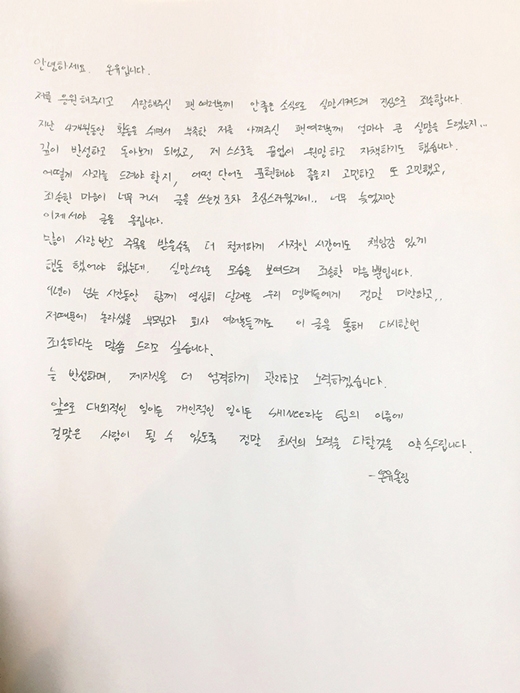 안녕하세요. 온유입니다.
저를 응원해주시고 사랑해주신 팬여러분께 안좋은 소식으로 실망시켜드려 진심으로 죄송합니다
지난 4개월동안 활동을 쉬면서 부족한 저를 아껴주신 팬여러분께 얼마나 큰 실망을 드렸는지...
깊이 반성하고 돌아보게 되었고, 제 스스로를 끝없이 원망하고 자책하기도 했습니다.
어떻게 사과를 드려야 할지, 어떤 단어로 표현해야 좋을지 고민하고 또 고민했고,
죄송한 마음이 너무 커서 글을 쓰는것 조차 조심스러웠기에.. 너무 늦었지만
이제서야 글을 올립니다.
많이 사랑받고 주목을 받을수록 더 철저하게 사적인 시간에도 책임감 있게
행동 했어야 했는데. 실망스러운 모습을 보여드려 죄송한 마음뿐입니다.
9년이 넘는 시간동안 함께 열심히 달려온 우리 멤버들에게 정말 미안하고..
저때문에 놀라셨을 부모님과 회사 여러분들께도 이 글을 통해 다시한번
죄송하다는 말씀 드리고 싶습니다.
늘 반성하며, 제자신을 더 엄격하게 관리하고 노력하겠습니다.
앞으로 대외적인 일이든 개인적인 일이든 SHINee라는 팀의 이름에
걸맞은 사람이 될 수 있도록 정말 최선의 노력을 다할것을 약속드립니다.
-온유올림